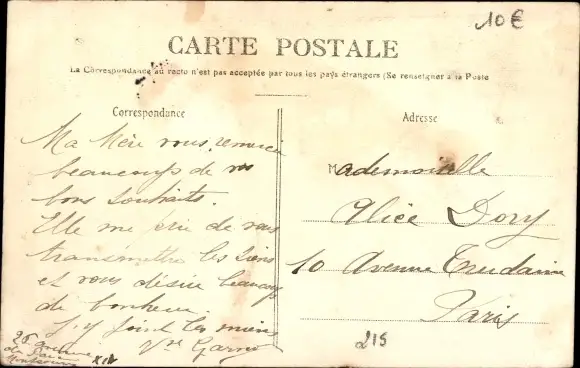 10€
CARTE POSTALE
La Correspondance au recto n'est pas acceptée par tous les pays étrangers (Se renseigner à la Poste
Correspondance
Adresse
Ma Mère vous remercie
beaucoup de vos
bons souhaits.
Elle me prie de vous
transmettre les siens
et vous désire beaucoup
de bonheur
J'y joint les miens
Vve Garnier
26 avenue
Mademoiselle
Alice Dory
10 Avenue Trudaine
Paris
215